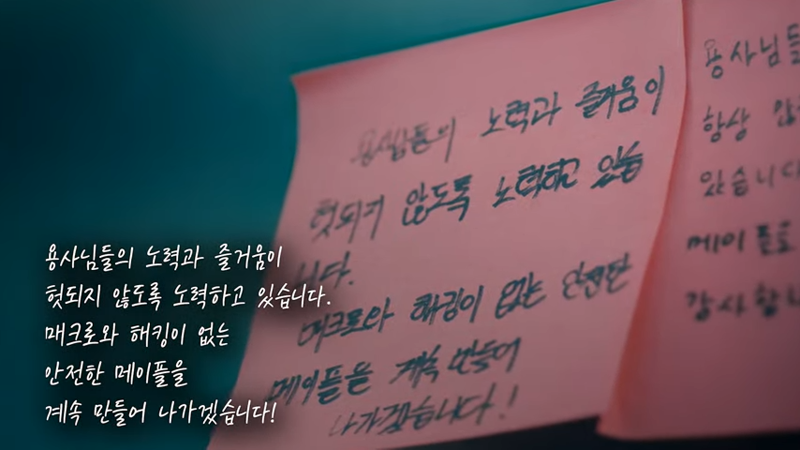 용사님들의 노력과 즐거움이
헛되지 않도록 노력하고 있습니다.
매크로와 해킹이 없는
안전한 메이플을
계속 만들어 나가겠습니다!
용사님들의 노력과 즐거움이
헛되지 않도록 노력하고 있습
니다.
매크로와 해킹이 없는 안전한
메이플을 계속 만들어
나가겠습니다!
용사님들
항상
있습니다
메이플
감사합니